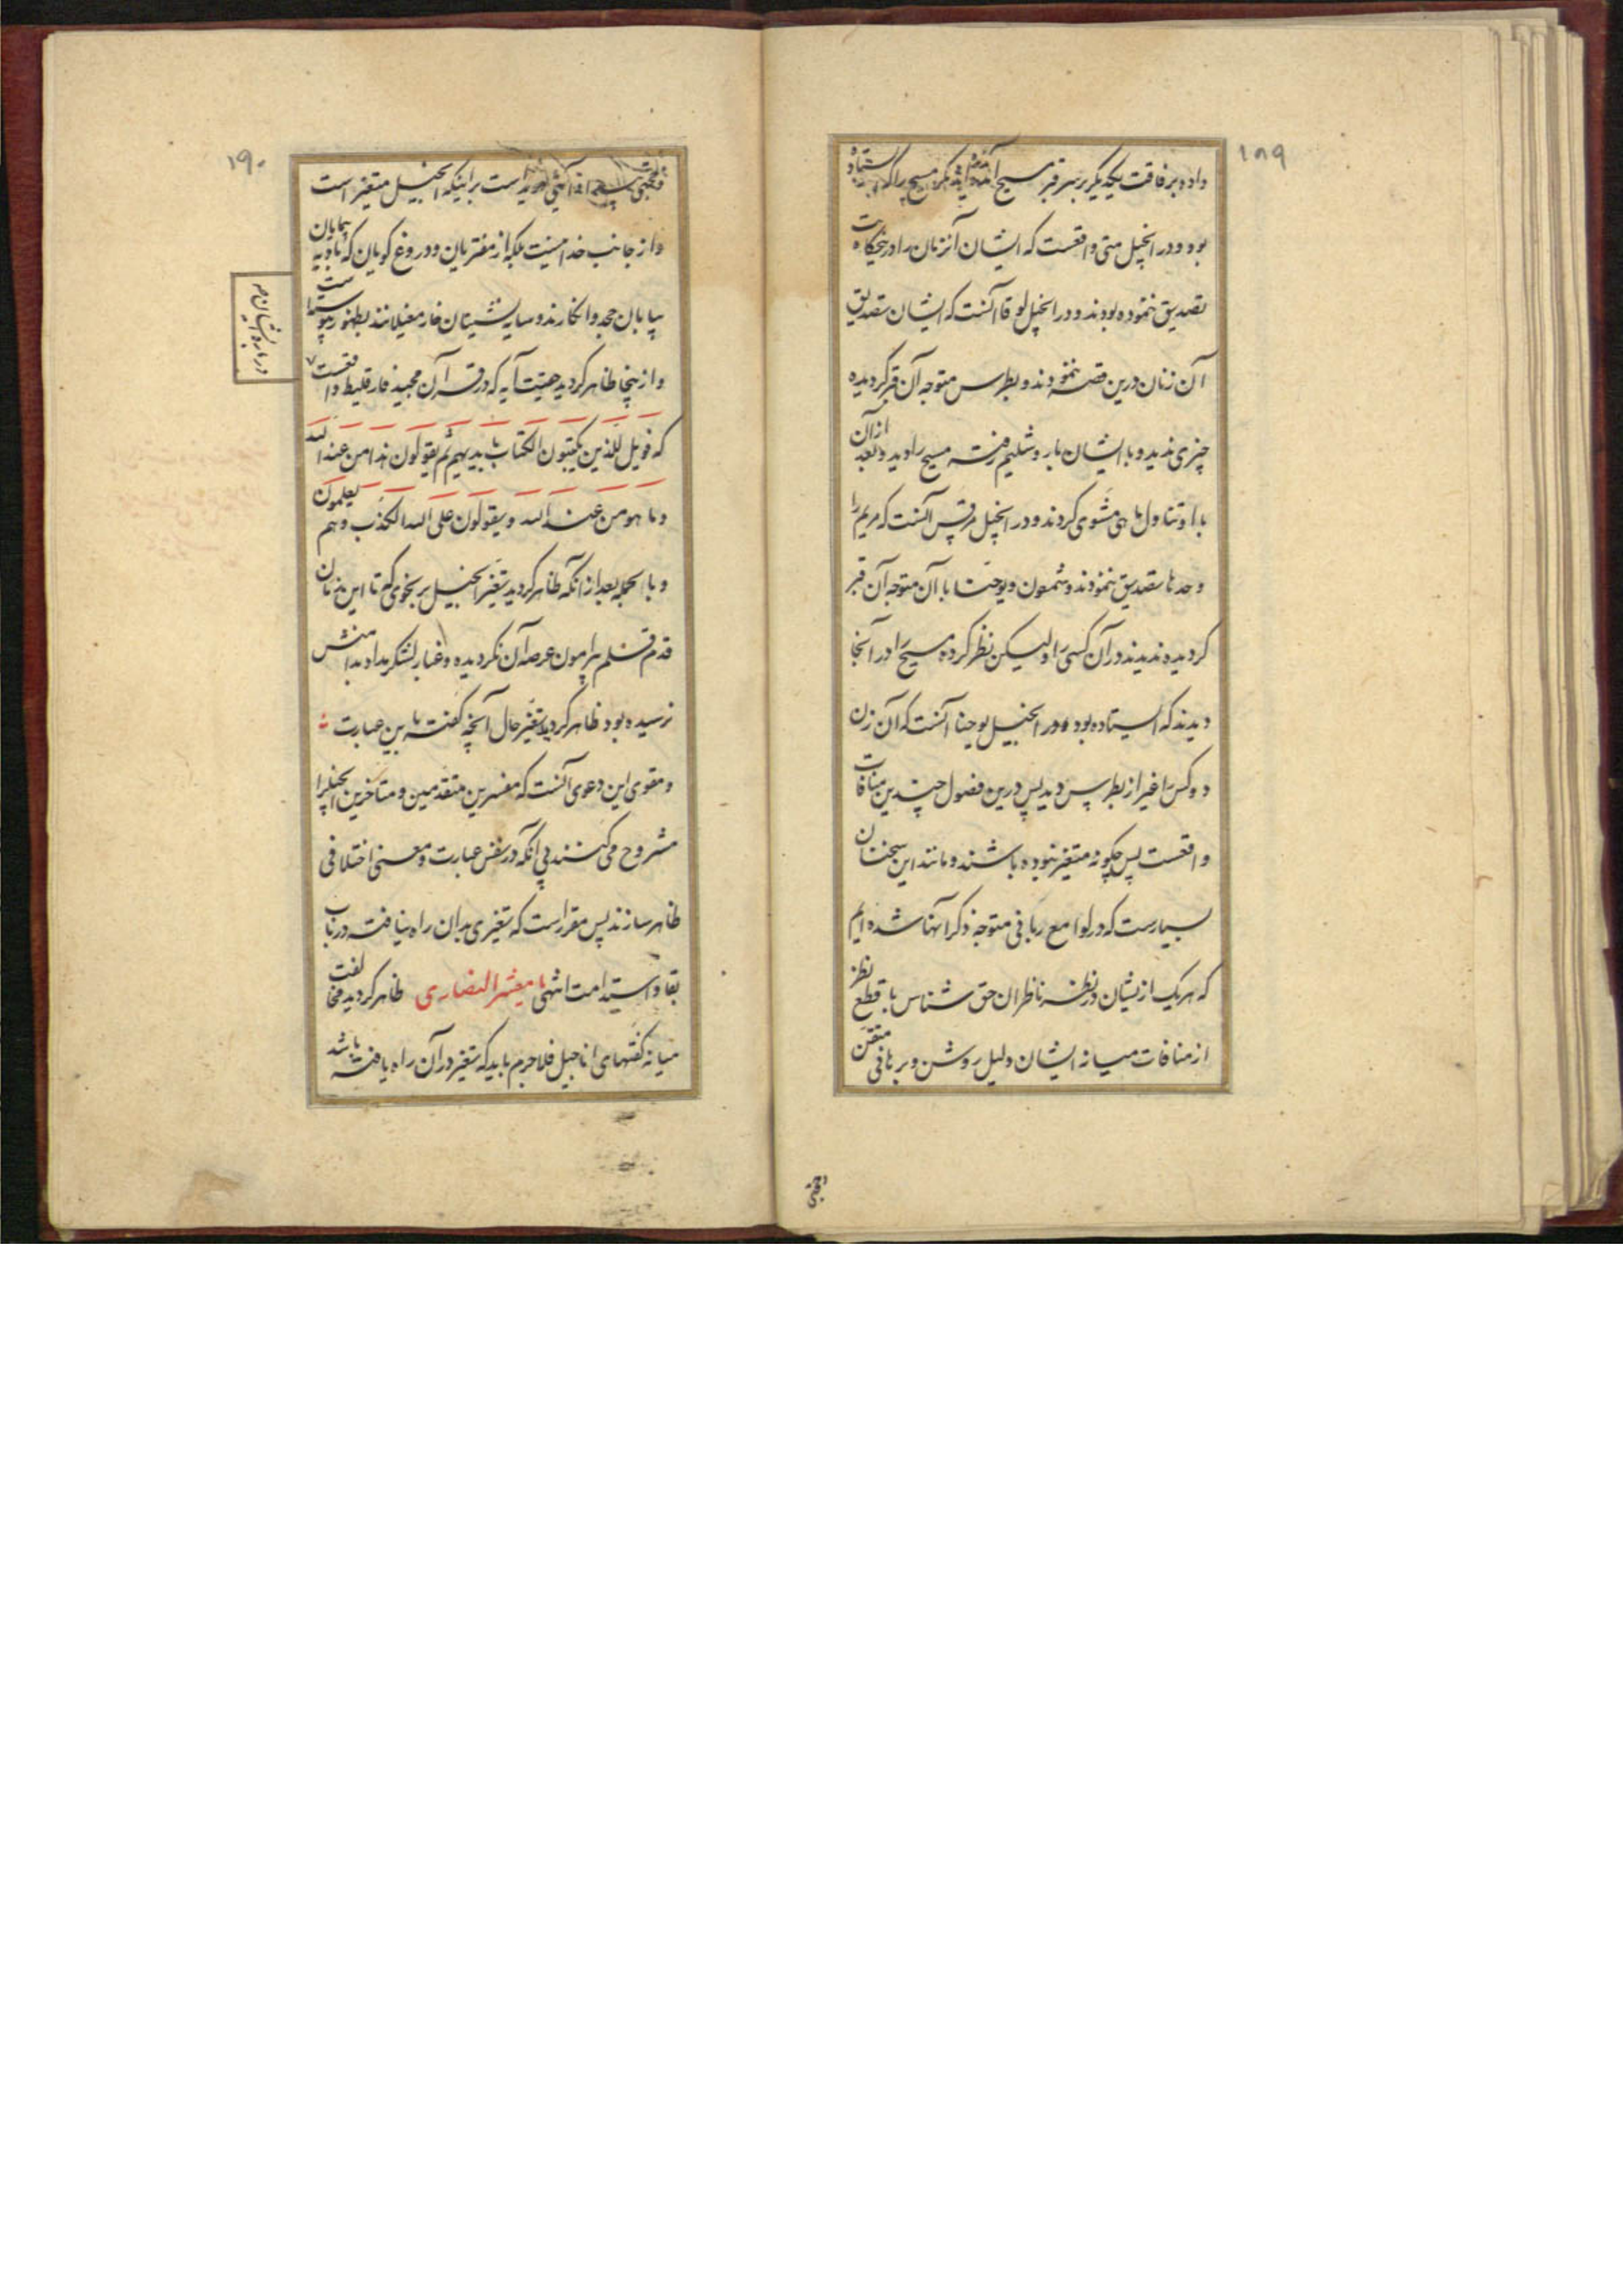 ۱۸۹
داده برفاقت یکدیگر بر سر قبر مسیح آمده اند مسیح را که ایستاده
بود و در انجیل متی واقعست که ایشان آنزنان را درینحکایت
تصدیق ننموده بودند و در انجیل لوقا آنست که ایشان تصدیق
آن زنان درین قصه ننمودند و بطرس متوجه آن قبر گردیده
چیزی ندید و با ایشان باروشلیم رفته مسیح را دید و بعد از آن
با او تناول ماهی مشوی کردند و در انجیل مرقس آنست که مریم را
وحدها تصدیق ننمودند و شمعون و یوحنا با آن متوجه آن قبر
گردیده ندیدند در آن کسی را ولیکن نظر کرده مسیح را در آنجا
دیدند که ایستاده بود و در انجیل یوحنا آنست که آن زن
دو کس را غیر از بطرس دید پس درین فصول چندین منافات
واقعست پس چگونه متغیر نبوده باشند و مانند این سخنان
بسیارست که در لوامع ربانی متوجه ذکر آنها شده ایم
که هر یک ازیشان در نظر ناظران حق شناس با قطع نظر
از منافات میانه ایشان دلیل روشن و برهانی متقن
وحجتی
۱۹۰
وحجتی است براینکه انجیل متغیر است
و از جانب خدا نیست بلکه از مفتریان و دروغ گویان که بادیه پیمایان
بیابان جحد و انکارند و سایه نشینان خار مغیلانند بظهور پیوسته است
و ازینجا ظاهر گردید حقیت آیه که در قرآن مجید فارقلیط واقعست
که فویل للذین یکتبون الکتاب بایدیهم ثم یقولون هذا من عند الله
وما هو من عند الله و یقولون علی الله الکذب وهم یعلمون
و بالجمله بعد از آنکه ظاهر گردید تغیر انجیل بر نحوی که تا این زمان
قدم قلم پیرامون عرصه آن نگردیده و غبار لشکر مداد بدامنش
نرسیده بود ظاهر گردید تغیر حال آنچه گفته باین عبارت
و مقوی این دعوی آنست که مفسرین متقدمین و متأخرین انجیل را
مشروح می کنند بی آنکه در نفس عبارت و معنی اختلافی
ظاهر سازند پس مقرر است که تغیری بدان راه نیافته در باب
بقا و استدامت انتهی یا معشر النصاری ظاهر گردید مخالفت
میانه گفتهای اناجیل فلاجرم باید که تغیر در آن راه یافته باشد
درباره ایشان